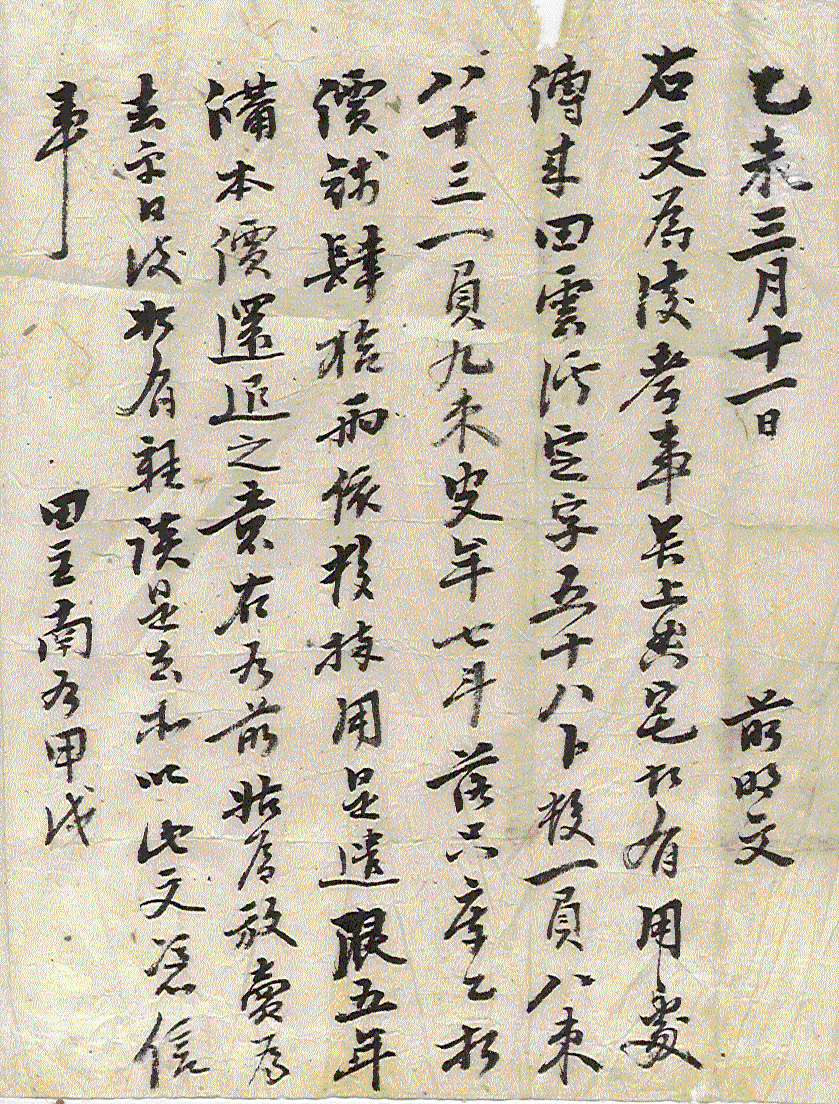 乙未三月十一日 前明文
右文爲後考事矣上典宅如有用處
傳來田雲浮定字五十八卜校一負八束
八十三一負九束 年七斗落只庫乙 
價錢肆拾兩依數捧用是遣限五年
備本價還退之意右 前 放賣爲
去乎日後如有雜談是去等以此文憑信
事
田主南 甲戌